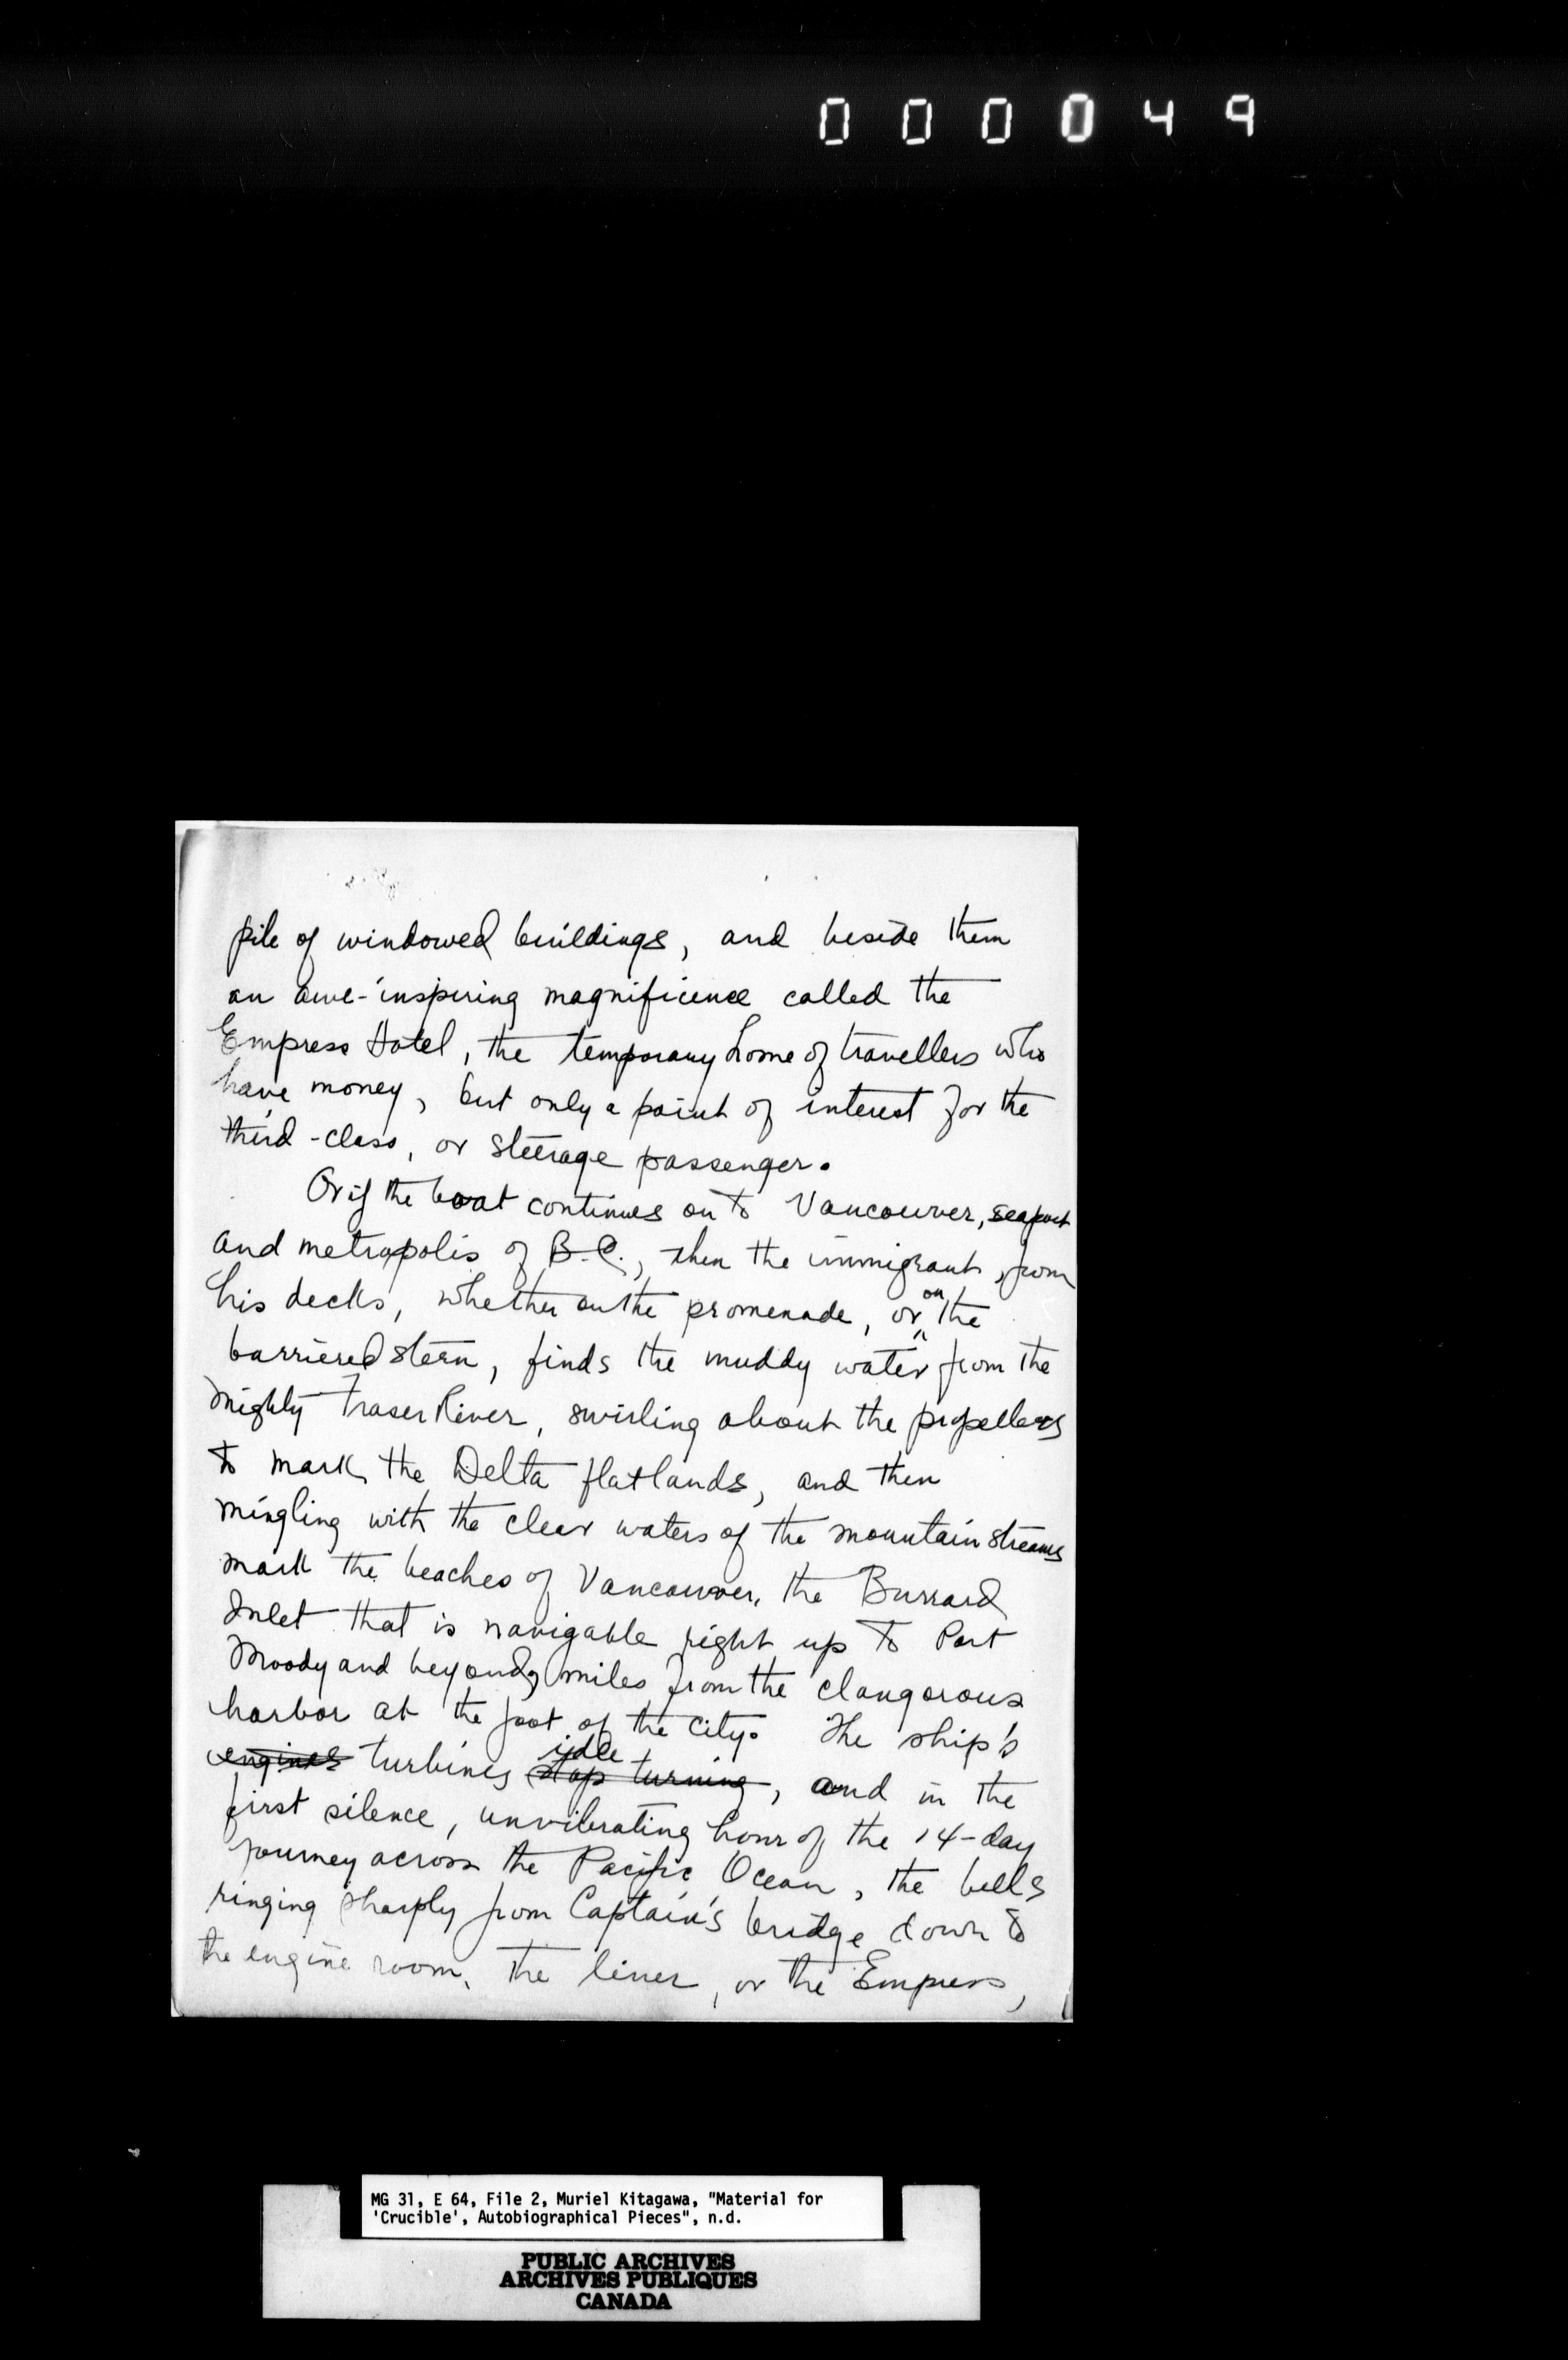 000049
pile of windowed buildings, and beside them
an awe-inspiring magnificence called the
Empress Hotel, the temporary home of travellers who
have money, but only a point of interest for the
third-class, or steerage passenger.
Or if the boat continues on to Vancouver, seaport
and metropolis of B.C., then the immigrant, from
his decks, whether on the promenade, or on the
barriered stern, finds the muddy water from the
mighty Fraser River, swirling about the propellers
to mark the Delta flatlands, and then
mingling with the clear waters of the mountain streams
mark the beaches of Vancouver, the Burrard
Inlet that is navigable right up to Port
Moody and beyond, miles from the clangorous
harbor at the foot of the city. The ship's
engines turbines idle stop turning, and in the
first silence, unvibrating hour of the 14-day
journey across the Pacific Ocean, the bells
ringing sharply from Captain's bridge down to
the engine room, the liner, or the Empress,
MG 31, E 64, File 2, Muriel Kitagawa, "Material for
'Crucible', Autobiographical Pieces", n.d.
PUBLIC ARCHIVES
ARCHIVES PUBLIQUES
CANADA